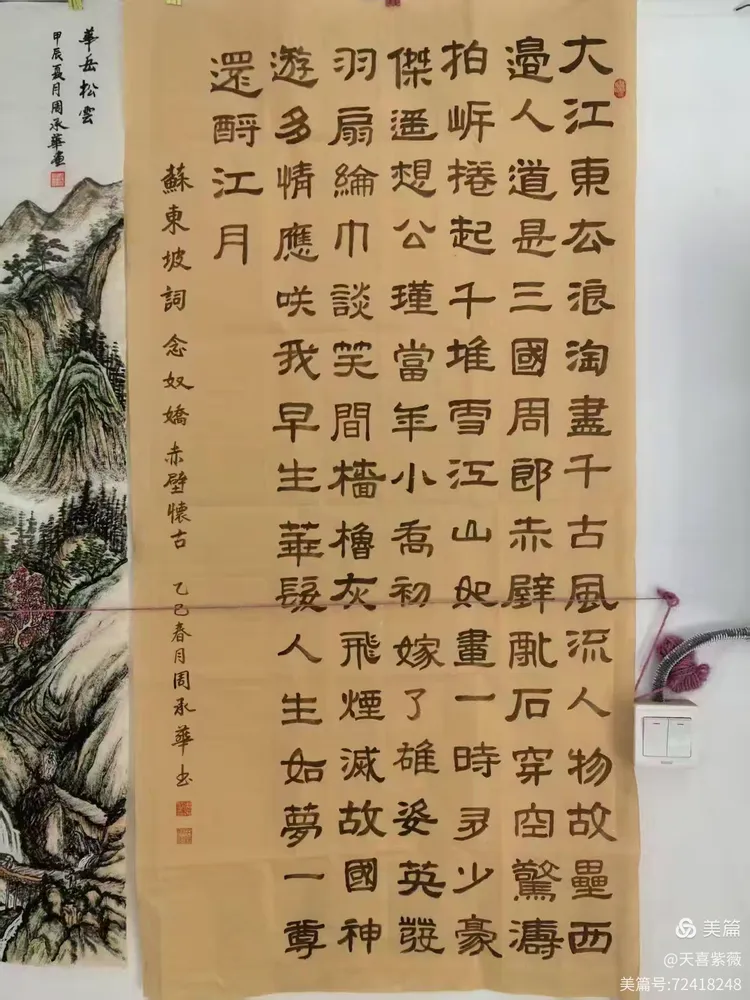 大江東去浪淘盡千古風流人物故壘西
邉人道是三國周郎赤壁亂石穿空驚濤
拍岸捲起千堆雪江山如畫一時多少豪
傑遥想公瑾當年小喬初嫁了雄姿英發
羽扇綸巾談笑間檣櫓灰飛煙滅故國神
遊多情應咲我早生華髮人生如夢一尊
還酹江月
蘇東坡詞 念奴嬌 赤壁懷古 乙巳春月周承華书
華岳松雲
甲辰夏月周承華畫
美篇
@天喜紫薇
美篇号:72418248